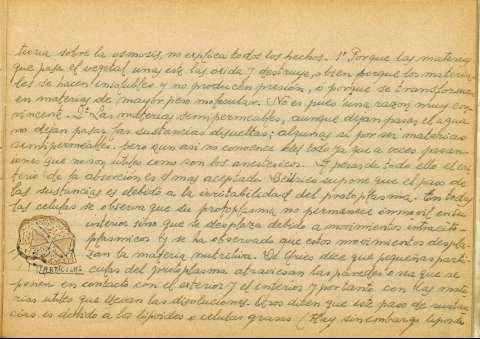 teoria sobre la osmosis, no explica todos los hechos. 1º Porque las materias
que pasa el vegetal unas este las oxida y destruye, o bien porque los materia-
les se hacen insolubles y no producen presión, o porque se transforman
en materias de mayor peso molecular. No es pues una razon muy con-
vincente. 2º Las materias semipermeables, aunque dejan pasar el agua
no dejan pasar las sustancias disueltas; algunas si por ser materias
semipermeables pero aun asi no conocense del todo ya que a veces pasan
iones que no son utiles como son los anestesicos. A pesar de todo ello el cri-
terio de la absorción es el mas aceptado. supone que el paso de
las sustancias es debido a la irritabilidad del protoplasma. En todas
las celulas se observa que su protoplasma no permanece inmovil en su
interior sino que se desplaza debido a movimientos intracito-
plasmicos y se ha observado que estos movimientos despla-
zan la materia nutritiva. De Vries dice que pequeñas parti-
culas del protoplasma atraviesan las paredes o sea que se
ponen en contacto con el exterior y el interior y por tanto con las mate-
rias utiles que llevan las disoluciones. Otros dicen que este paso de sustan-
cias es debido a los lipoides o celulas grasas (Hay sin embargo